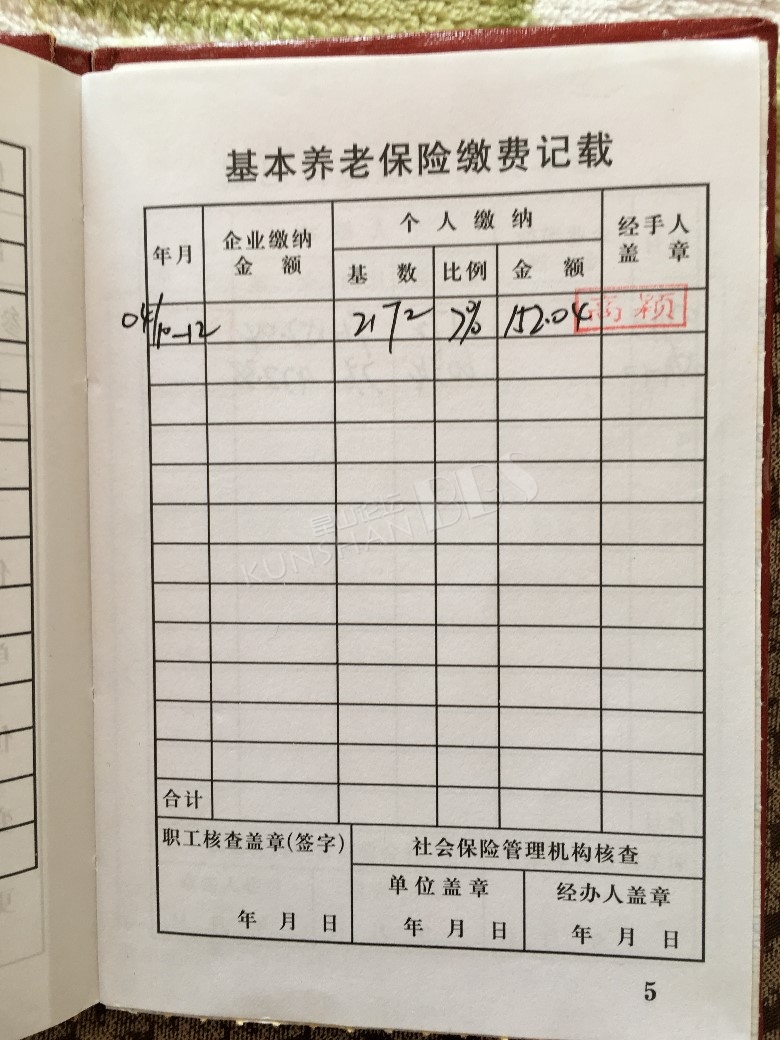 基本养老保险缴费记载
年月 企业缴纳金额 个人缴纳 经手人盖章
基数 比例 金额
04/10-12 2172 7% 152.04 高颖
合计
职工核查盖章(签字) 社会保险管理机构核查
单位盖章 经办人盖章
年 月 日 年 月 日 年 月 日
5
昆山论坛
KUNSHAN BBS